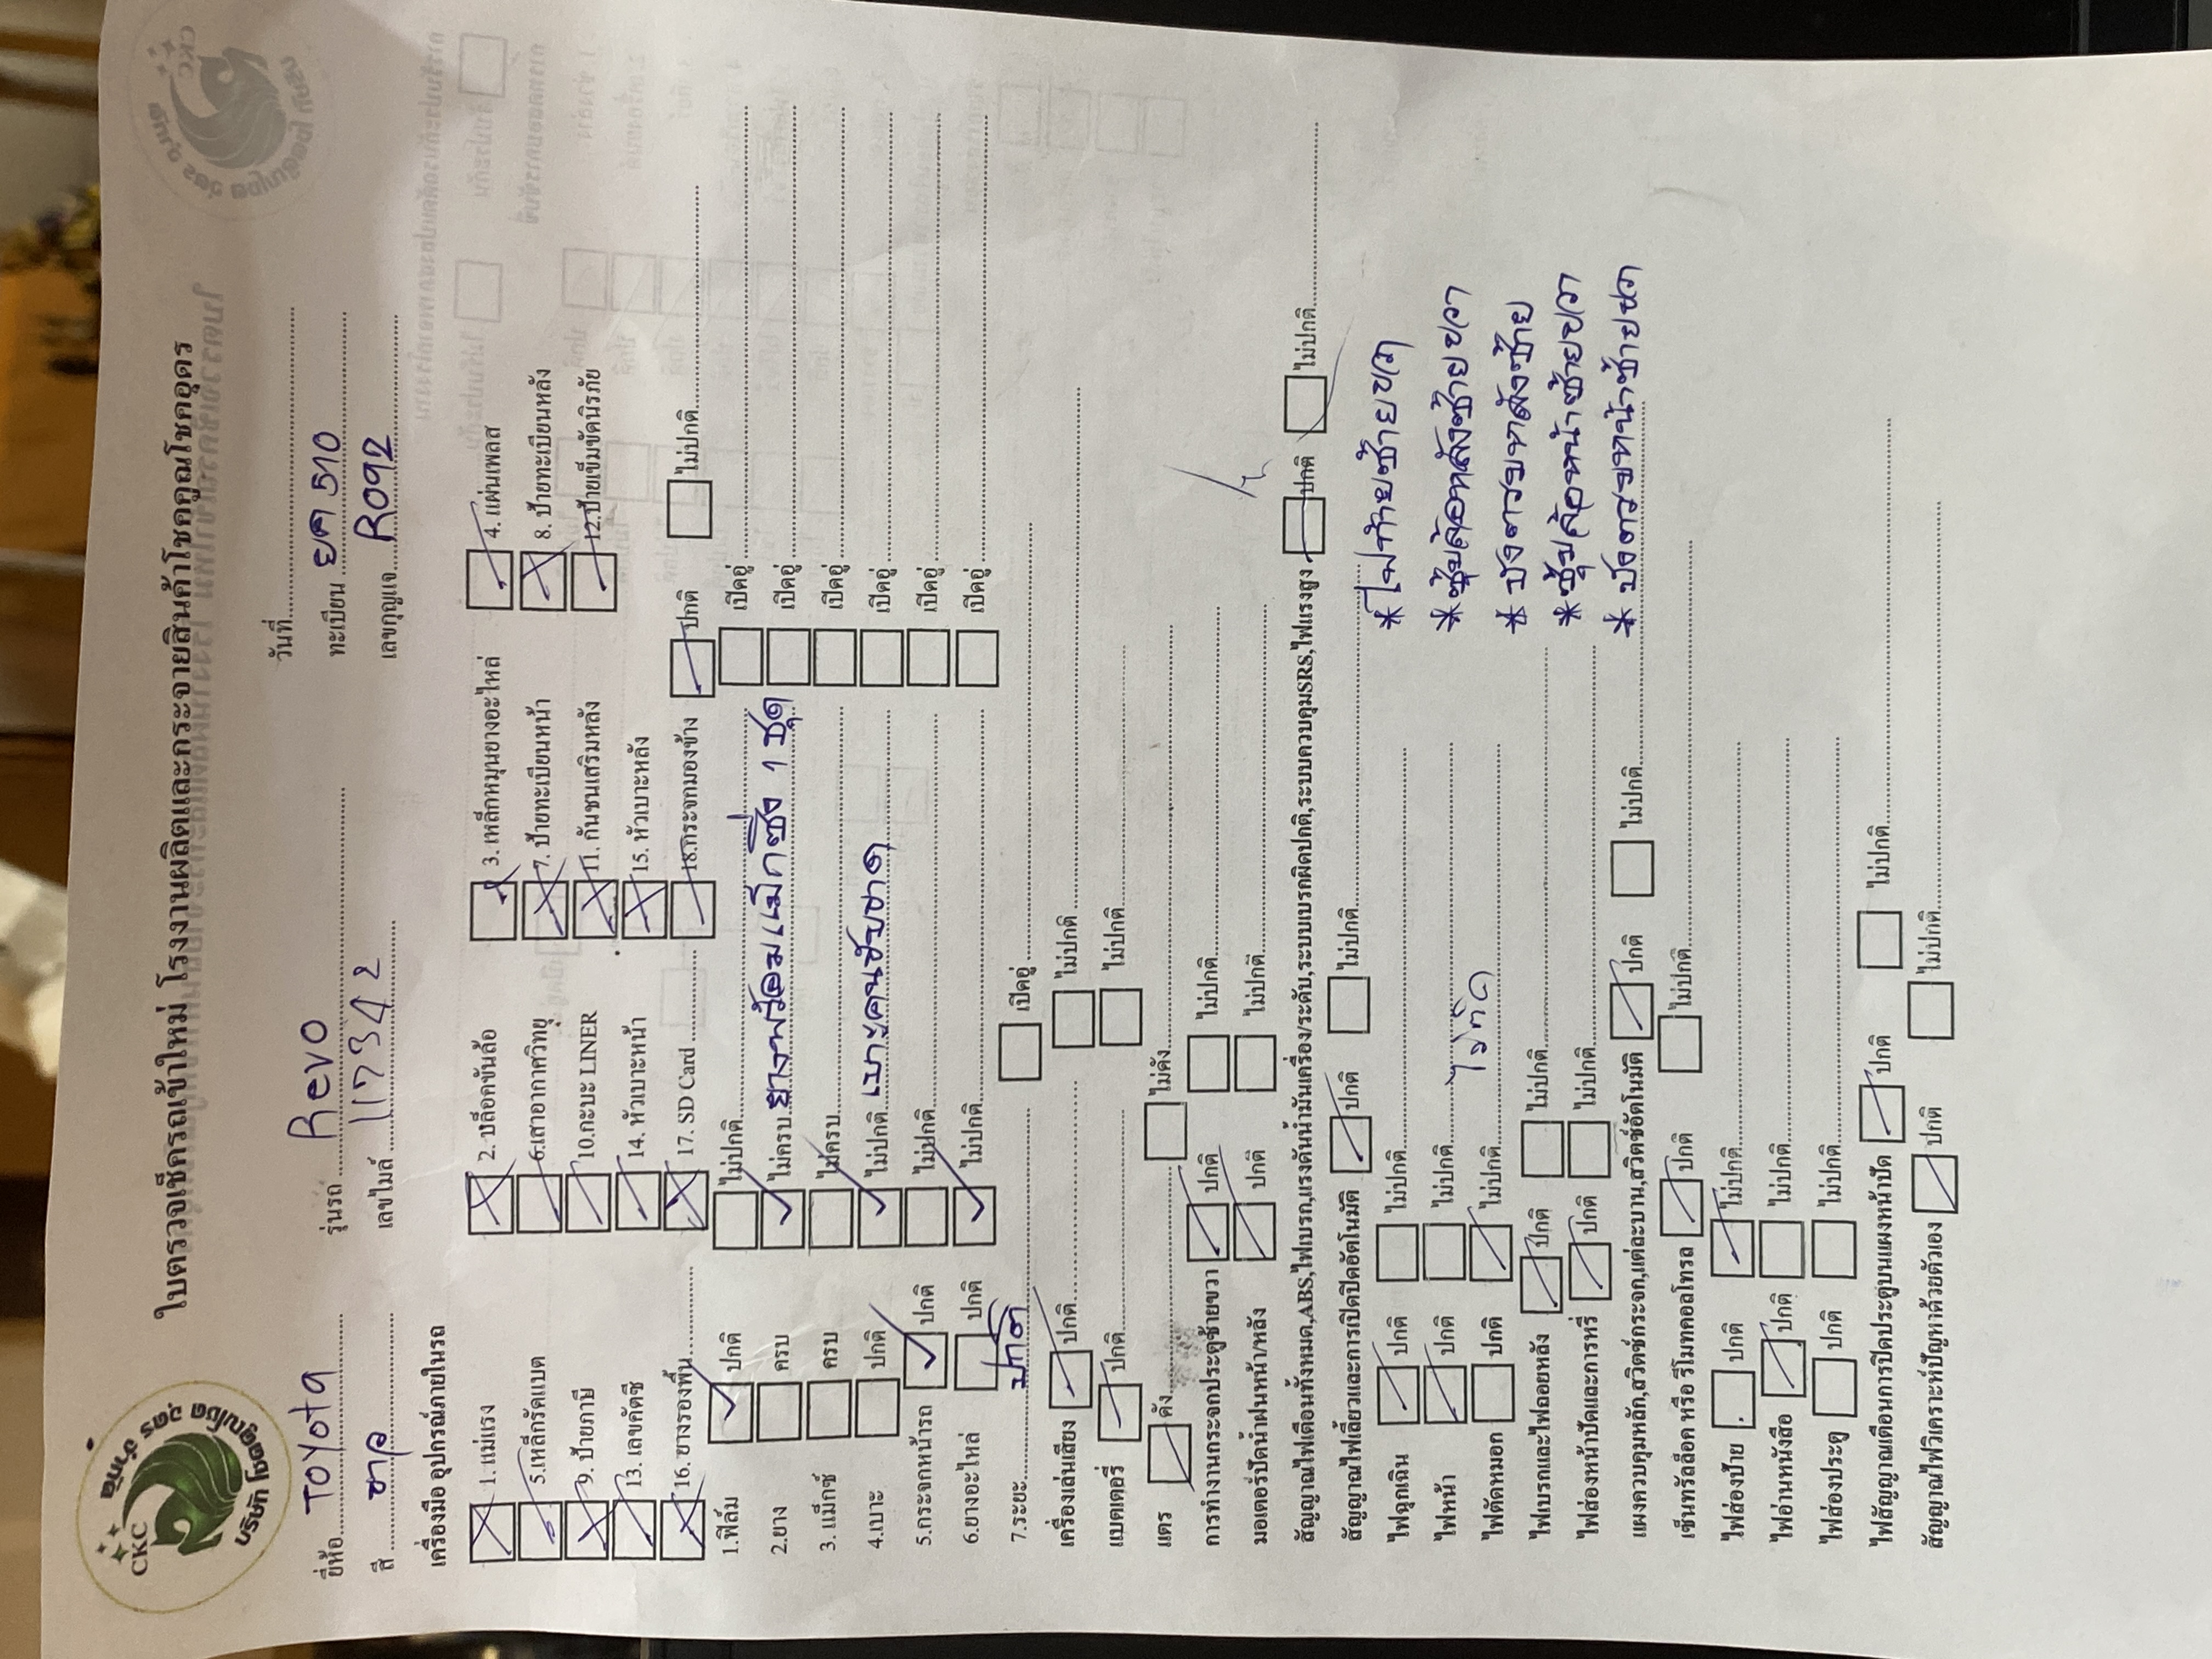 CKC
บริษัท โชคคูณโชค อุดร จำกัด
ใบตรวจเช็ครถเข้าใหม่ โรงงานผลิตและกระจายสินค้าโชคคูณโชคอุดร
วันที่
ยี่ห้อ TOYOTA รุ่นรถ Revo ทะเบียน ยค 510
สี ขาว เลขไมล์ 117342 เลขกุญแจ R092
เครื่องมือ อุปกรณ์ภายในรถ
1. แม่แรง 2. บล็อคขันล้อ 3. เหล็กหมุนยางอะไหล่ 4. แผ่นเพลส
5.เหล็กรัดแบต 6.เสาอากาศวิทยุ 7. ป้ายทะเบียนหน้า 8. ป้ายทะเบียนหลัง
9. ป้ายภาษี 10.กะบะ LINER 11. กันชนเสริมหลัง 12.ป้ายเข็มขัดนิรภัย
13. เลขคัตซี 14. หัวเบาะหน้า 15. หัวเบาะหลัง
16. ยางรองพื้น 17. SD Card 18.กระจกมองข้าง ปกติ ไม่ปกติ
1.ฟิล์ม ปกติ ไม่ปกติ เบิคอู่
2.ยาง ครบ ไม่ครบ ยางพร้อมแม็กซิ่ง 1 ชุด เบิคอู่
3. แม็กซ์ ครบ ไม่ครบ เบิคอู่
4.เบาะ ปกติ ไม่ปกติ เบาะคนขับขาด เบิคอู่
5.กระจกหน้ารถ ปกติ ไม่ปกติ เบิคอู่
6.ยางอะไหล่ ปกติ ไม่ปกติ เบิคอู่
7.ระยะ ปกติ เบิคอู่
เครื่องเล่นเสียง ปกติ ไม่ปกติ
แบตเตอรี่ ปกติ ไม่ปกติ
แตร ดัง ไม่ดัง
การทำงานกระจกประตูซ้ายขวา ปกติ ไม่ปกติ
มอเตอร์ปัดน้ำฝนหน้า/หลัง ปกติ ไม่ปกติ
สัญญาณไฟเตือนทั้งหมด,ABS,ไฟเบรก,แรงดันน้ำมันเครื่อง/ระดับ,ระบบเบรกผิดปกติ,ระบบควบคุมSRS,ไฟแรงสูง ปกติ ไม่ปกติ
สัญญาณไฟเลี้ยวและการเปิดปิดอัตโนมัติ ปกติ ไม่ปกติ
ไฟฉุกเฉิน ปกติ ไม่ปกติ *ไฟท้ายซ้ายขวา
ไฟหน้า ปกติ ไม่ปกติ *ซุ้มล้อหลังซ้ายขวา
ไฟตัดหมอก ปกติ ไม่ปกติ ไม่ติด * บังตวยหลังซ้าย
ไฟเบรกและไฟถอยหลัง ปกติ ไม่ปกติ *ซุ้มล้อหน้าซ้ายขวา
ไฟส่องหน้าปัดและการหรี่ ปกติ ไม่ปกติ * บังตวยหน้าซ้ายขวา
แผงควบคุมหลัก,สวิตช์กระจก,แต่ละบาน,สวิตช์อัตโนมัติ ปกติ ไม่ปกติ
เซ็นทรัลล็อค หรือ รีโมทคอลโทรล ปกติ ไม่ปกติ
ไฟส่องป้าย ปกติ ไม่ปกติ
ไฟอ่านหนังสือ ปกติ ไม่ปกติ
ไฟส่องประตู ปกติ ไม่ปกติ
ไฟสัญญาณเตือนการปิดประตูบนแผงหน้าปัด ปกติ ไม่ปกติ
สัญญาณไฟวิเคราะห์ปัญหาด้วยตัวเอง ปกติ ไม่ปกติ